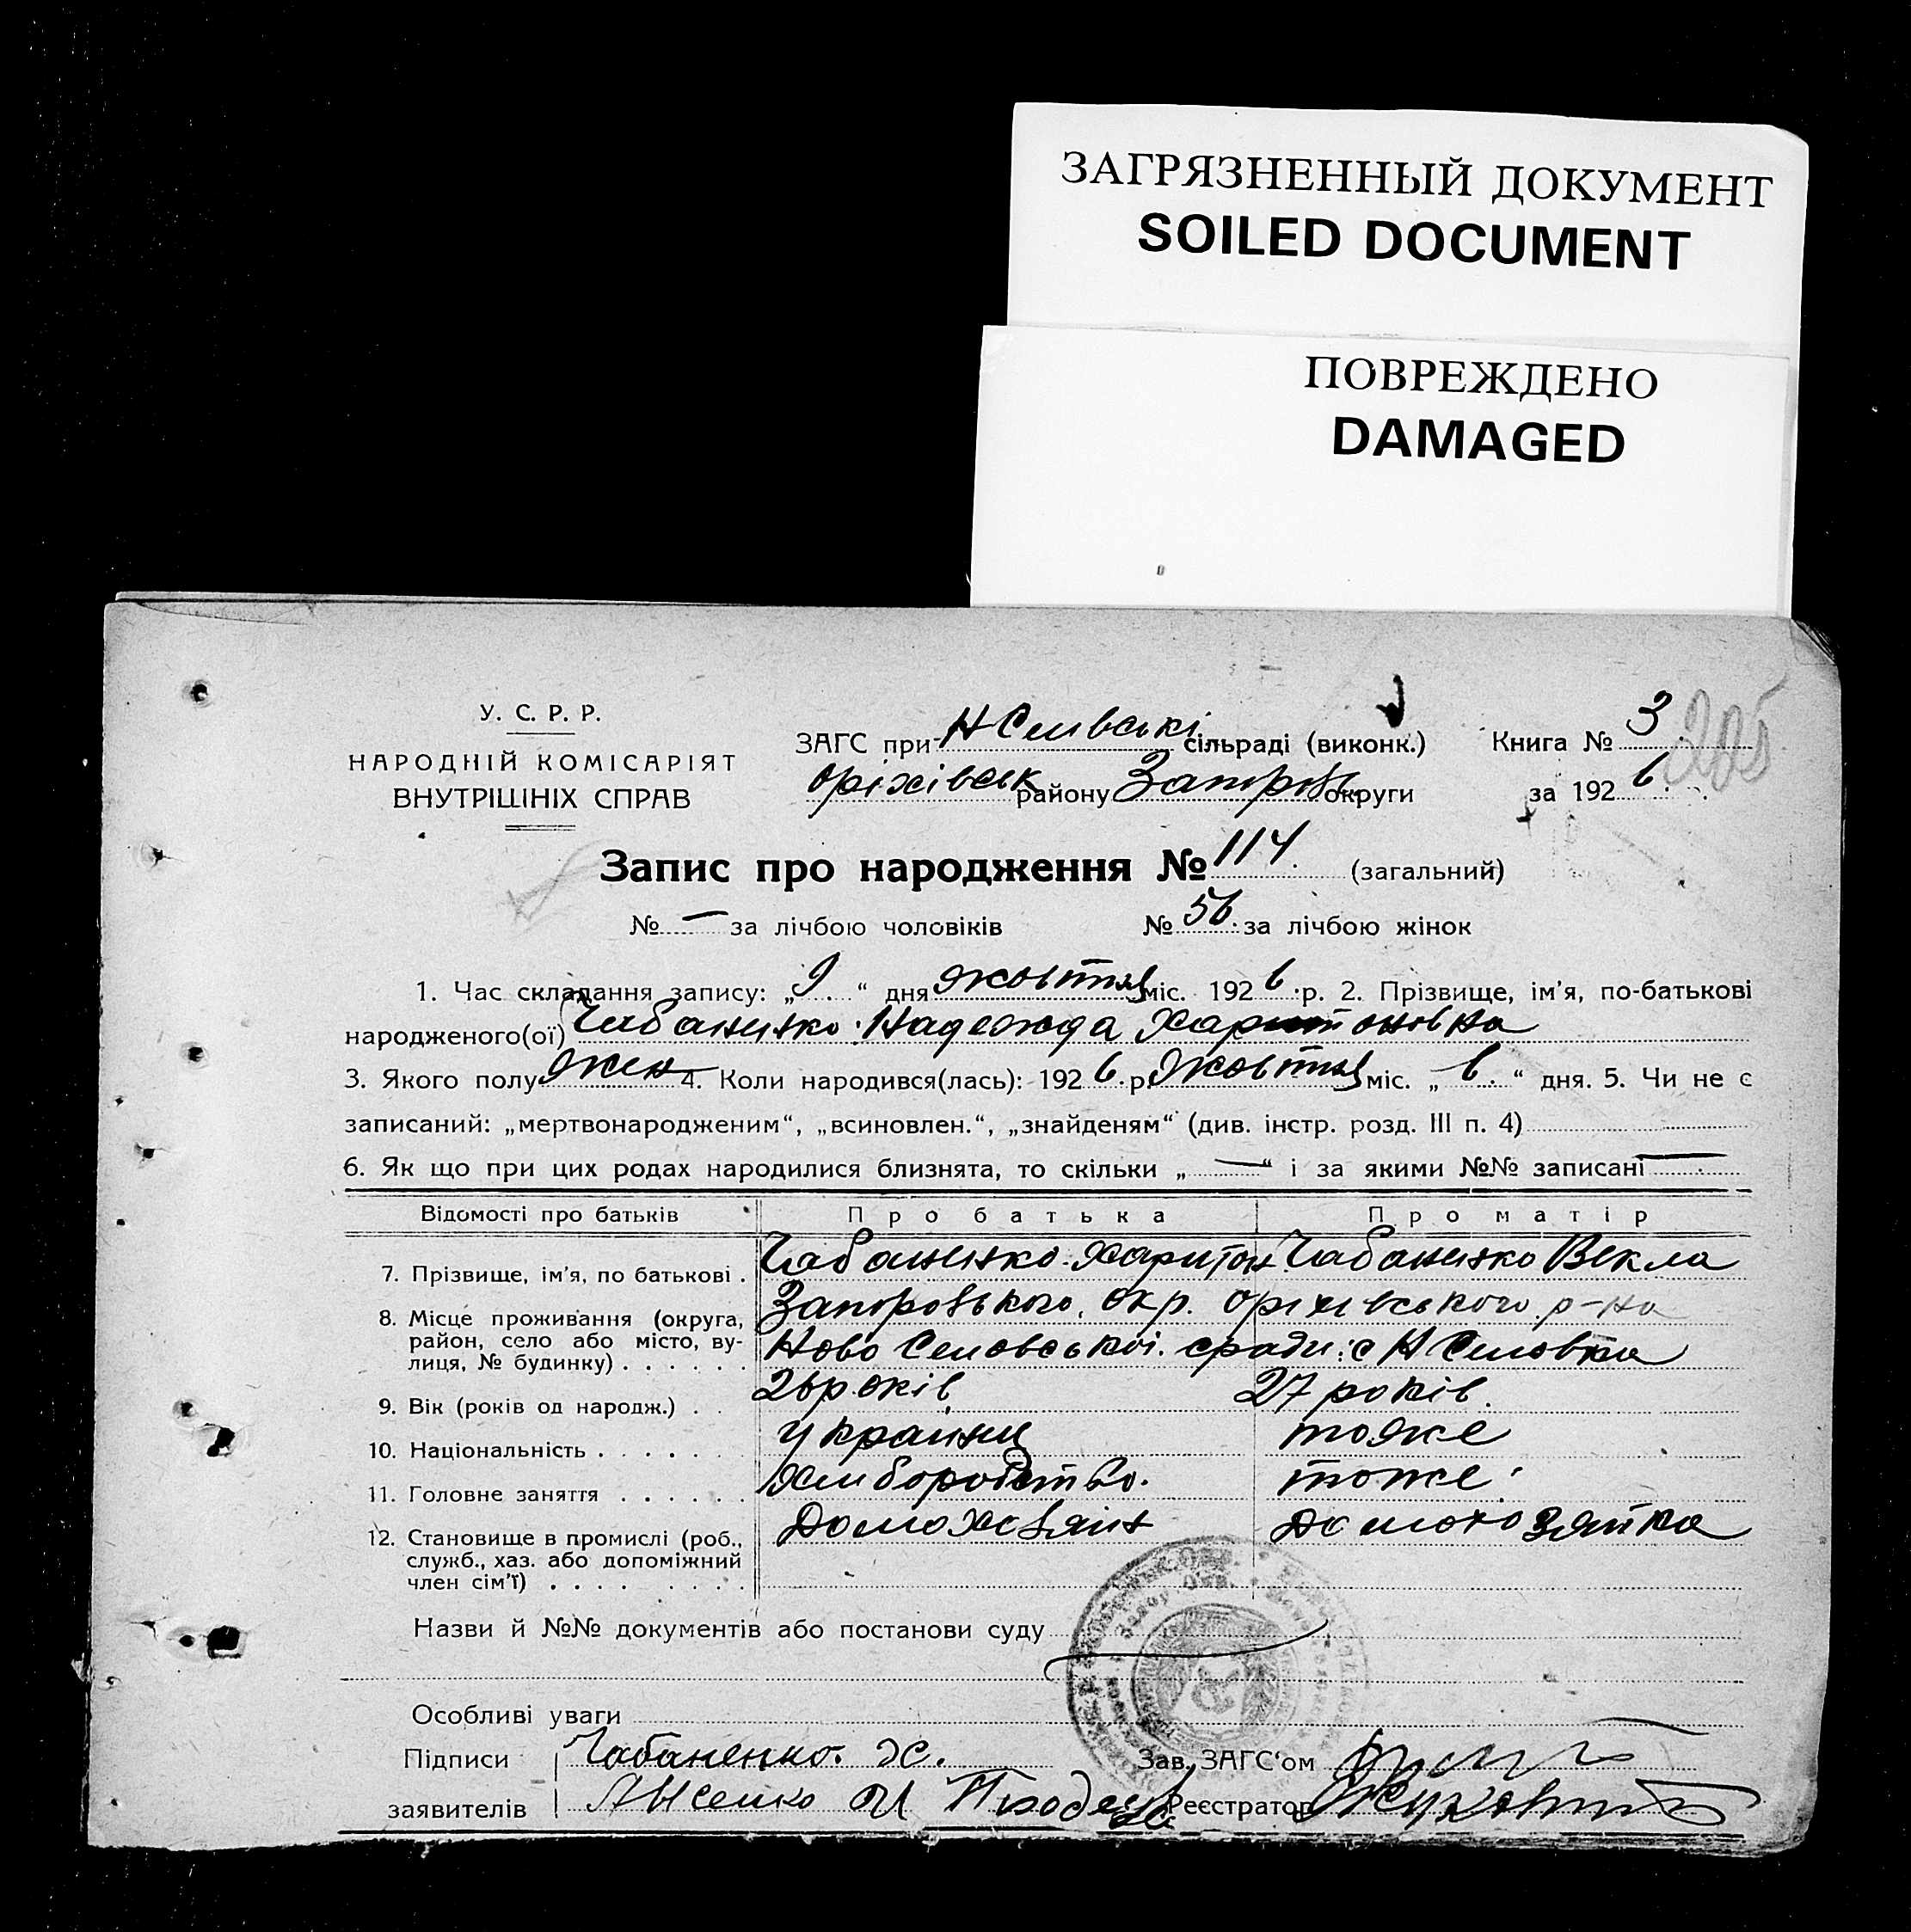 ЗАГРЯЗНЕННЫЙ ДОКУМЕНТ
SOILED DOCUMENT
ПОВРЕЖДЕНО
DAMAGED
У. С. Р. Р.
НАРОДНІЙ КОМІСАРІЯТ
ВНУТРІШНІХ СПРАВ
ЗАГС при Н Селівські сільраді (виконк.) Книга № 3
205
Оріхівськ району Запорізь округи за 1926
Запис про народження № 114. (загальний)
№ — за лічбою чоловіків № 56. за лічбою жінок
1. Час складання запису: „9“ дня жовтня міс. 1926 р. 2. Прізвище, ім'я, по-батькові
народженого(ої) Чабаненко Надежда Харитоновна
3. Якого полу жен 4. Коли народився(лась): 1926 р. жовтня міс. „6.“ дня. 5. Чи не є
записаний: „мертвонародженим“, „всиновлен.“, „знайденям“ (див. інстр. розд. III п. 4)
6. Як що при цих родах народилися близнята, то скільки „—“ і за якими №№ записані —
Відомості про батьків Про батька Про матір
7. Прізвище, ім'я, по батькові . Чабаненко Харитон Чабаненко Векла
8. Місце проживання (округа, район, село або місто, вулиця, № будинку) . . . . . . Запорозького окр. Оріхівського р-на
Ново Селовської сради с Н Селовка
9. Вік (років од народж.) . . 26 років 27 років.
10. Національність . . . . . . Українц тоже
11. Головне заняття . . . . . . Хлиборобство. тоже
12. Становище в промислі (роб., служб., хаз. або допоміжний член сім'ї) . . . . Домохозяин домохозяйка
Назви й №№ документів або постанови суду
Особливі уваги
Підписи Чабаненко. Х. Зав. ЗАГС'ом
заявителів Реєстратор